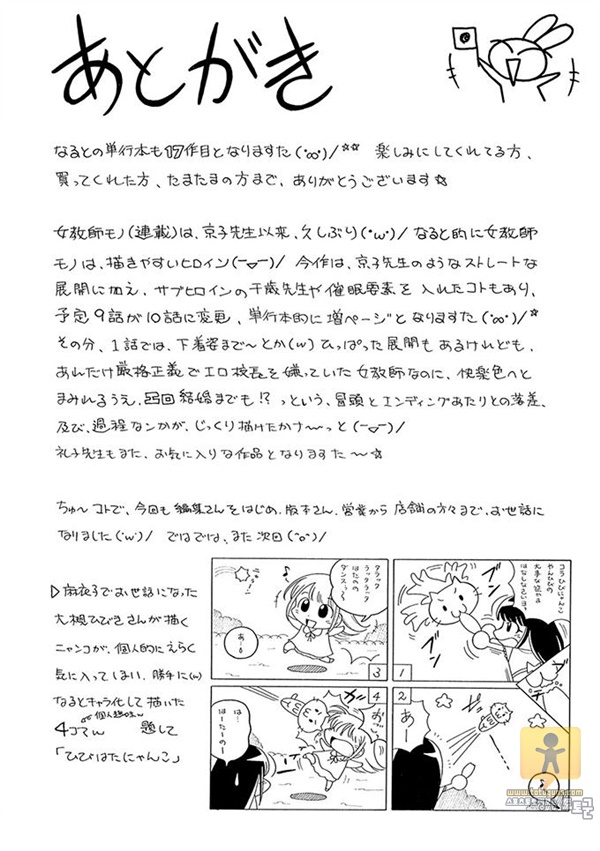 あとがき
なるとの単行本も17作目となりますた(°∞°)/☆☆ 楽しみにしてくれてる方、
買ってくれた方、たまたまの方まで、ありがとうございます☆
女教師モノ(連載)は、京子先生以来、久しぶり(°ω°)/ なると的に女教師
モノは、描きやすいヒロイン(ー▽ー)/ 今作は、京子先生のようなストレートな
展開に加え、サブヒロインの千歳先生や催眠要素を入れたコトもあり、
予定9話が10話に変更、単行本的に増ページとなりますた(°∞°)/☆
その分、1話では、下着姿まで〜とか(w) ひっぱった展開もあるけれども、
あれだけ厳格正義でエロ校長を嫌っていた女教師なのに、快楽色へと
まみれるうえ、結婚までも!? っという、冒頭とエンディングあたりとの落差、
及び、過程なンかが、じっくり描けたかナ〜っと(ー▽ー)/
礼子先生もまた、お気に入りな作品となりますた〜☆
ちゅ〜コトで、今回も編集さんをはじめ、版本さん、営業から店舗の方々まで、お世話に
なりました(°ω°)/ ではでは、また次回(°o°)/
▷麻衣子でお世話になった
大槻ひびきさんが描く
ニャンコが、個人的にえらく
気に入ってしまい、勝手に(w)
なるとキャラ化して描いた
個人趣味w
4コマw 題して
「ひびはたにゃんこ」
コラひびにゃんこ
やんひびの
大事な旗は
はなしなさいヨ。
1
あー
2
タラッタ
ラッタラッタ
はたのの
ダンス〜♪
あーる
3
おーい
は…
はーたーのー
4